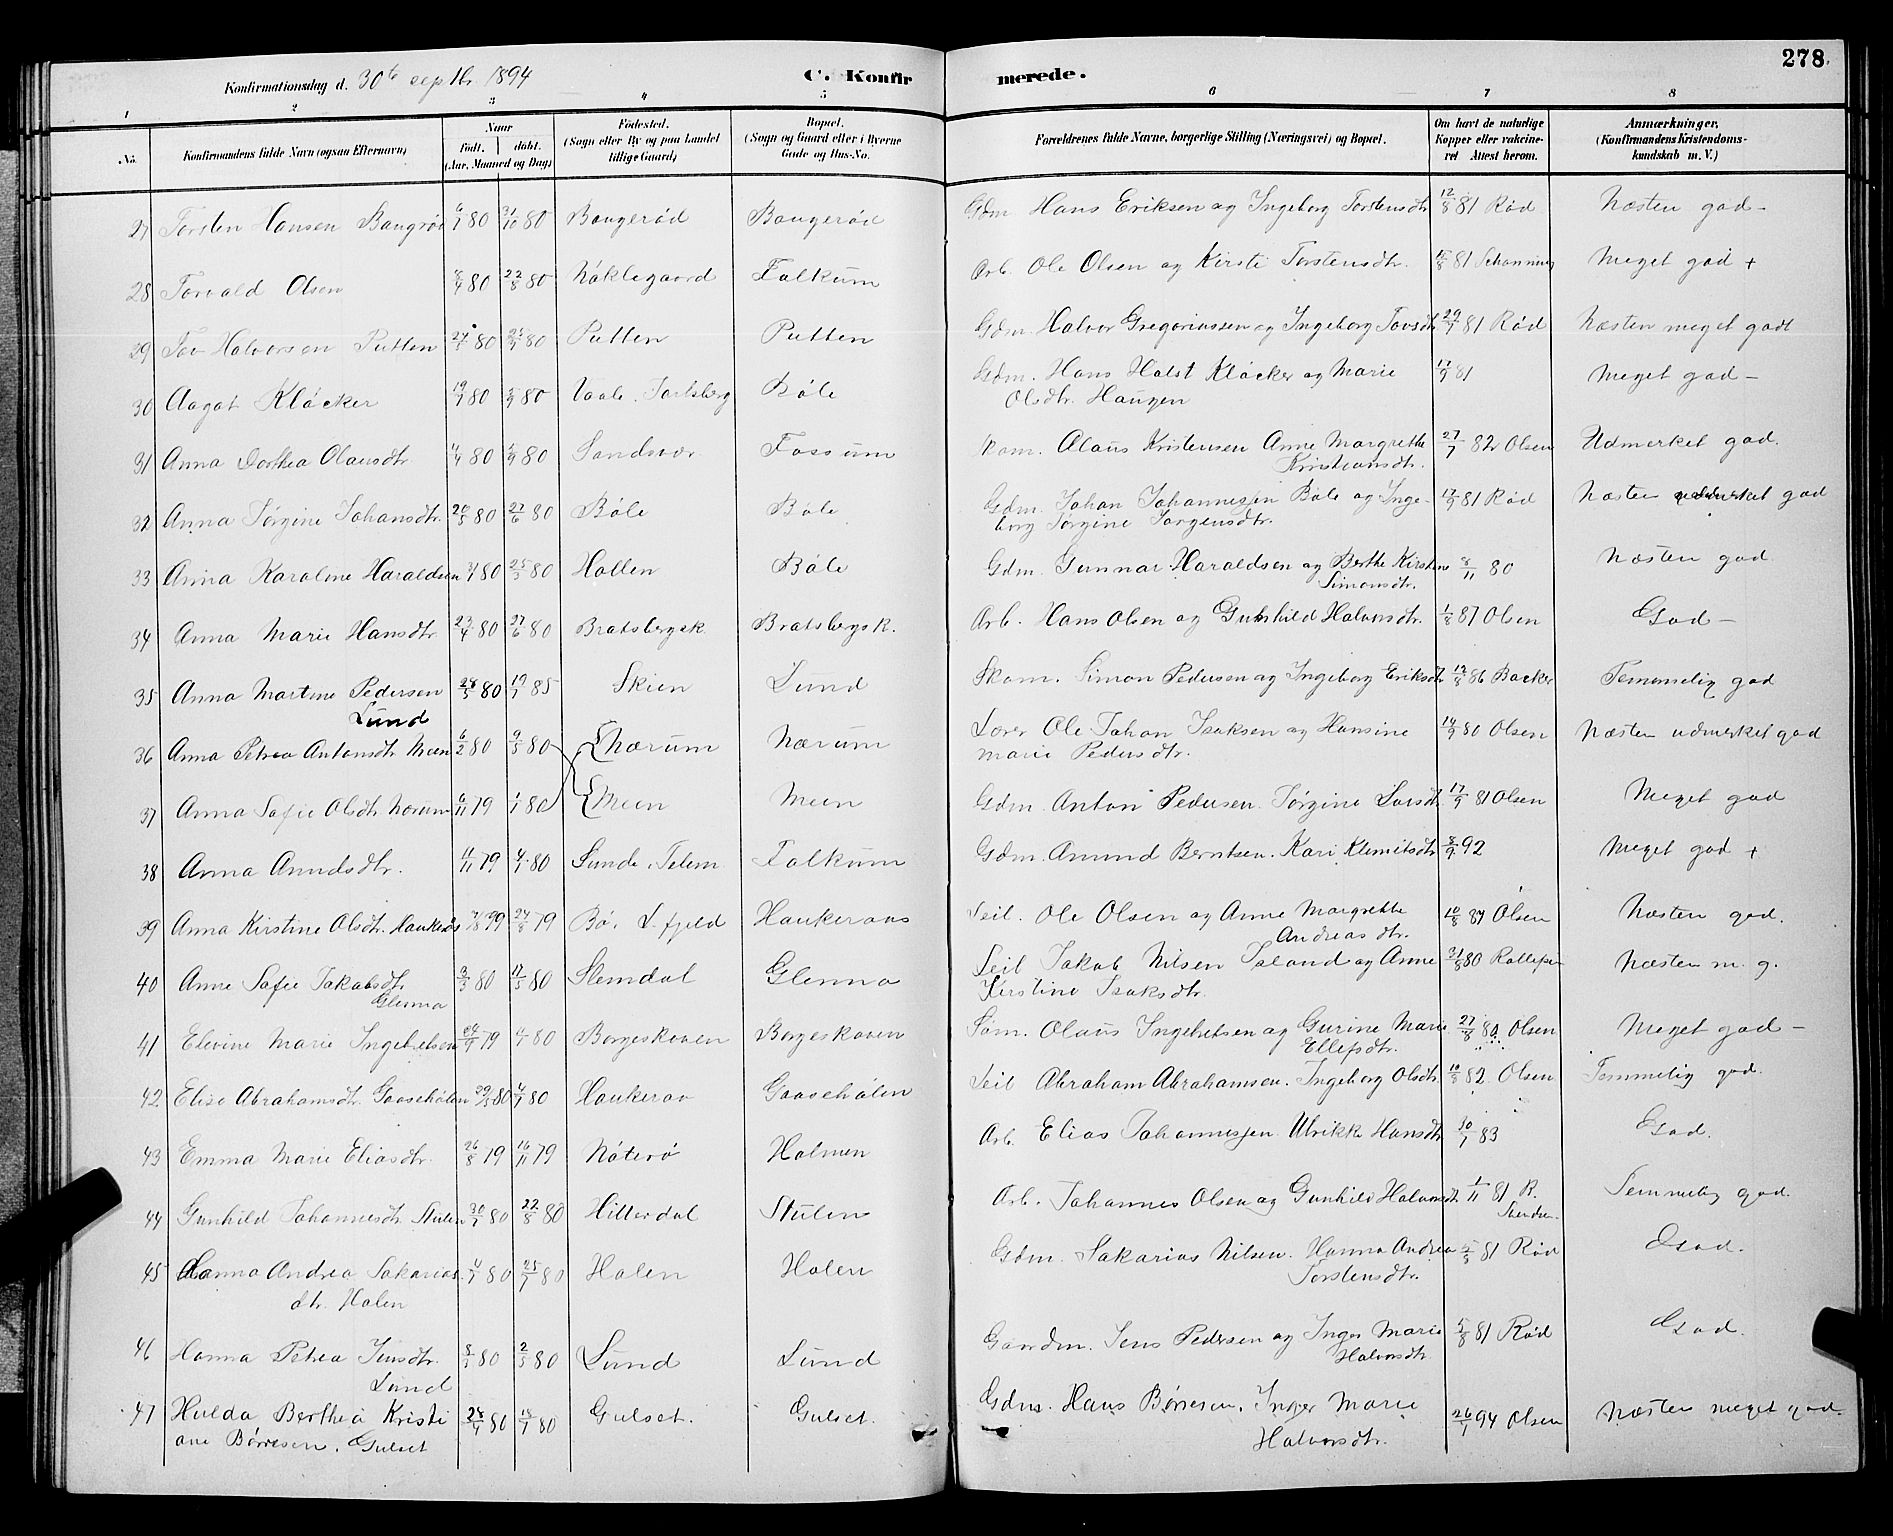 278.
Konfirmationsdag d. 30te septbr. 1894 C. Konfirmerede.
1 2 3 4 5 6 7 8
No. Konfirmandens fulde Navn (ogsaa Efternavn) Naar født. døbt. (Aar, Maaned og Dag) Fødested. (Sogn eller By og paa Landet tillige Gaard) Bopæl. (Sogn og Gaard eller i Byerne Gade og Hus-No. Forældrenes fulde Navne, borgerlige Stilling (Næringsvei) og Bopæl. Om havt de naturlige Kopper eller vakcineret Attest herom. Anmærkninger, (Konfirmandens Kristendomskundskab m. V.)
27 Torsten Hansen Baugrød 6/7 80 31/10 80 Baugerød Baugerød Gdm. Hans Eriksen og Ingeborg Torstensdtr 12/8 81 Rød Næsten god -
28 Torvald Olsen 8/4 80 22/8 80 Nøklegaard Falkum Arb. Ole Olsen og Kirsti Torstensdtr. 15/8 81 Schanning Meget god +
29 Tov Halvorsen Putten 27/5 80 25/9 80 Putten Putten Gdm. Halvor Gregoriussen og Ingeborg Tovsdtr 29/7 81 Rød Næsten meget godt
30 Aagot Kløcker 19/7 80 5/9 80 Vaale. Jarlsberg Bøle Gdm. Hans Holst Kløcker og Marie 17/9 81 Meget god -
Olsdtr. Haugen
31 Anna Dorthea Olausdtr 11/4 80 5/9 80 Sandsvær Fossum Skom. Olaus Kristensen Anne Margrethe 27/7 82 Olsen Udmerket god.
Kristiansdtr.
32 Anna Jørgine Johansdtr. 20/5 80 27/6 80 Bøle Bøle Gdm. Johan Johannesen Bøle og Inge- 17/9 81 Rød Næsten udmerket god
borg Jørgine Jørgensdtr.
33 Anna Karoline Haraldsen 3/1 80 25/3 80 Hollen Bøle Gdm. Gunnar Haraldsen og Berthe Kirstine 8/11 80 Næsten god
Simonsdtr.
34 Anna Marie Hansdtr. 23/4 80 27/6 80 Bratsbergsk. Bratsbergsk. Arb. Hans Olsen og Gunhild Halvorsdtr. 1/8 87 Olsen God -
35 Anna Martine Pedersen 28/5 80 19/7 85 Skien Lund Skom. Simon Pedersen og Ingeborg Eriksdtr 12/8 86 Backer Temmelig god
Lund
36 Anna Petrea Antonsdtr Meen 6/2 80 9/5 80 Nærum Nærum Lærer Ole Johan Isaksen og Hansine 14/9 80 Olsen Næsten udmerket god
Marie Pedersdtr.
37 Anna Sofie Olsdtr. Nærum 6/11 79 1/1 80 Meen Meen Gdm. Anton Pedersen. Jørgine Larsdtr 17/9 81 Olsen Meget god
38 Anna Amundsdtr. 11/11 79 4/1 80 Lunde. Telem Falkum Gdm. Amund Berntsen. Kari Klemitsdtr 8/9 92 Meget god +
39 Anna Kirstine Olsdtr. Haukeraas 7/8 79 24/8 79 Bø, L-fjeld Haukeraas Seil. Ole Olsen og Anne Margrethe 10/8 87 Olsen Næsten god.
Andreasdtr.
40 Anne Sofie Jakobsdtr. 3/3 80 17/5 80 Slemdal Glenna Seil Jakob Nilsen Island og Anne 31/8 80 Rollefsen Næsten m. g.
Glenna Kirstine Isaksdtr.
41 Elevine Marie Ingebretsen 24/9 79 4/1 80 Borgeskoven Borgeskoven Søm. Olaus Ingebretsen og Gurine Marie 27/8 80 Olsen Meget god -
Ellefsdtr.
42 Elise Abrahamsdtr. Gaasehølen 29/3 80 4/7 80 Haukeraa Gaasehølen Seil Abraham Abrahamsen. Ingeborg Olsdtr. 10/8 82 Olsen Temmelig god.
43 Emma Marie Eliasdtr. 26/8 79 16/11 79 Nøterø Holmen Arb. Elias Johannesen Ulrikke Hansdtr 10/7 83 God.
44 Gunhild Johannesdtr. Stulen 30/7 80 22/8 80 Hitterdal Stulen Arb. Johannes Olsen og Gunhild Halvorsdtr 1/11 81 R. Temmelig god.
45 Hanna Andrea Sakarias- 4/7 80 25/7 80 Holen Holen Gdm. Sakarias Nilsen. Hanna Andrea 5/5 81 Rød God.
dtr. Holen Torstensdtr.
46 Hanna Petrea Jensdtr. 8/3 80 2/5 80 Lund Lund Gaardm. Jens Pedersen og Inger Marie 5/8 81 Rød God.
Lund Halvorsdtr
47 Hulda Berthea Kristi 24/4 80 18/7 80 Gulset. Gulset. Gdm. Hans Børresen. Inger Marie 26/1 94 Olsen Næsten meget god.
ane Børresen. Gulset Halvorsdtr.